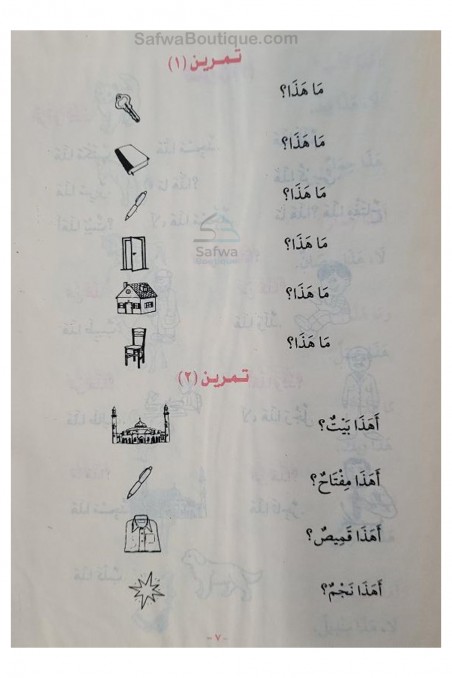 SafwaBoutique.com
تمرين (١)
مَا هَذَا؟
مَا هَذَا؟
مَا هَذَا؟
مَا هَذَا؟
Safwa
مَا هَذَا؟
مَا هَذَا؟
تمرين (٢)
أَهَذَا بَيْتٌ؟
أَهَذَا مِفْتَاحٌ؟
أَهَذَا قَمِيصٌ؟
أَهَذَا نَجْمٌ؟
- ٧ -